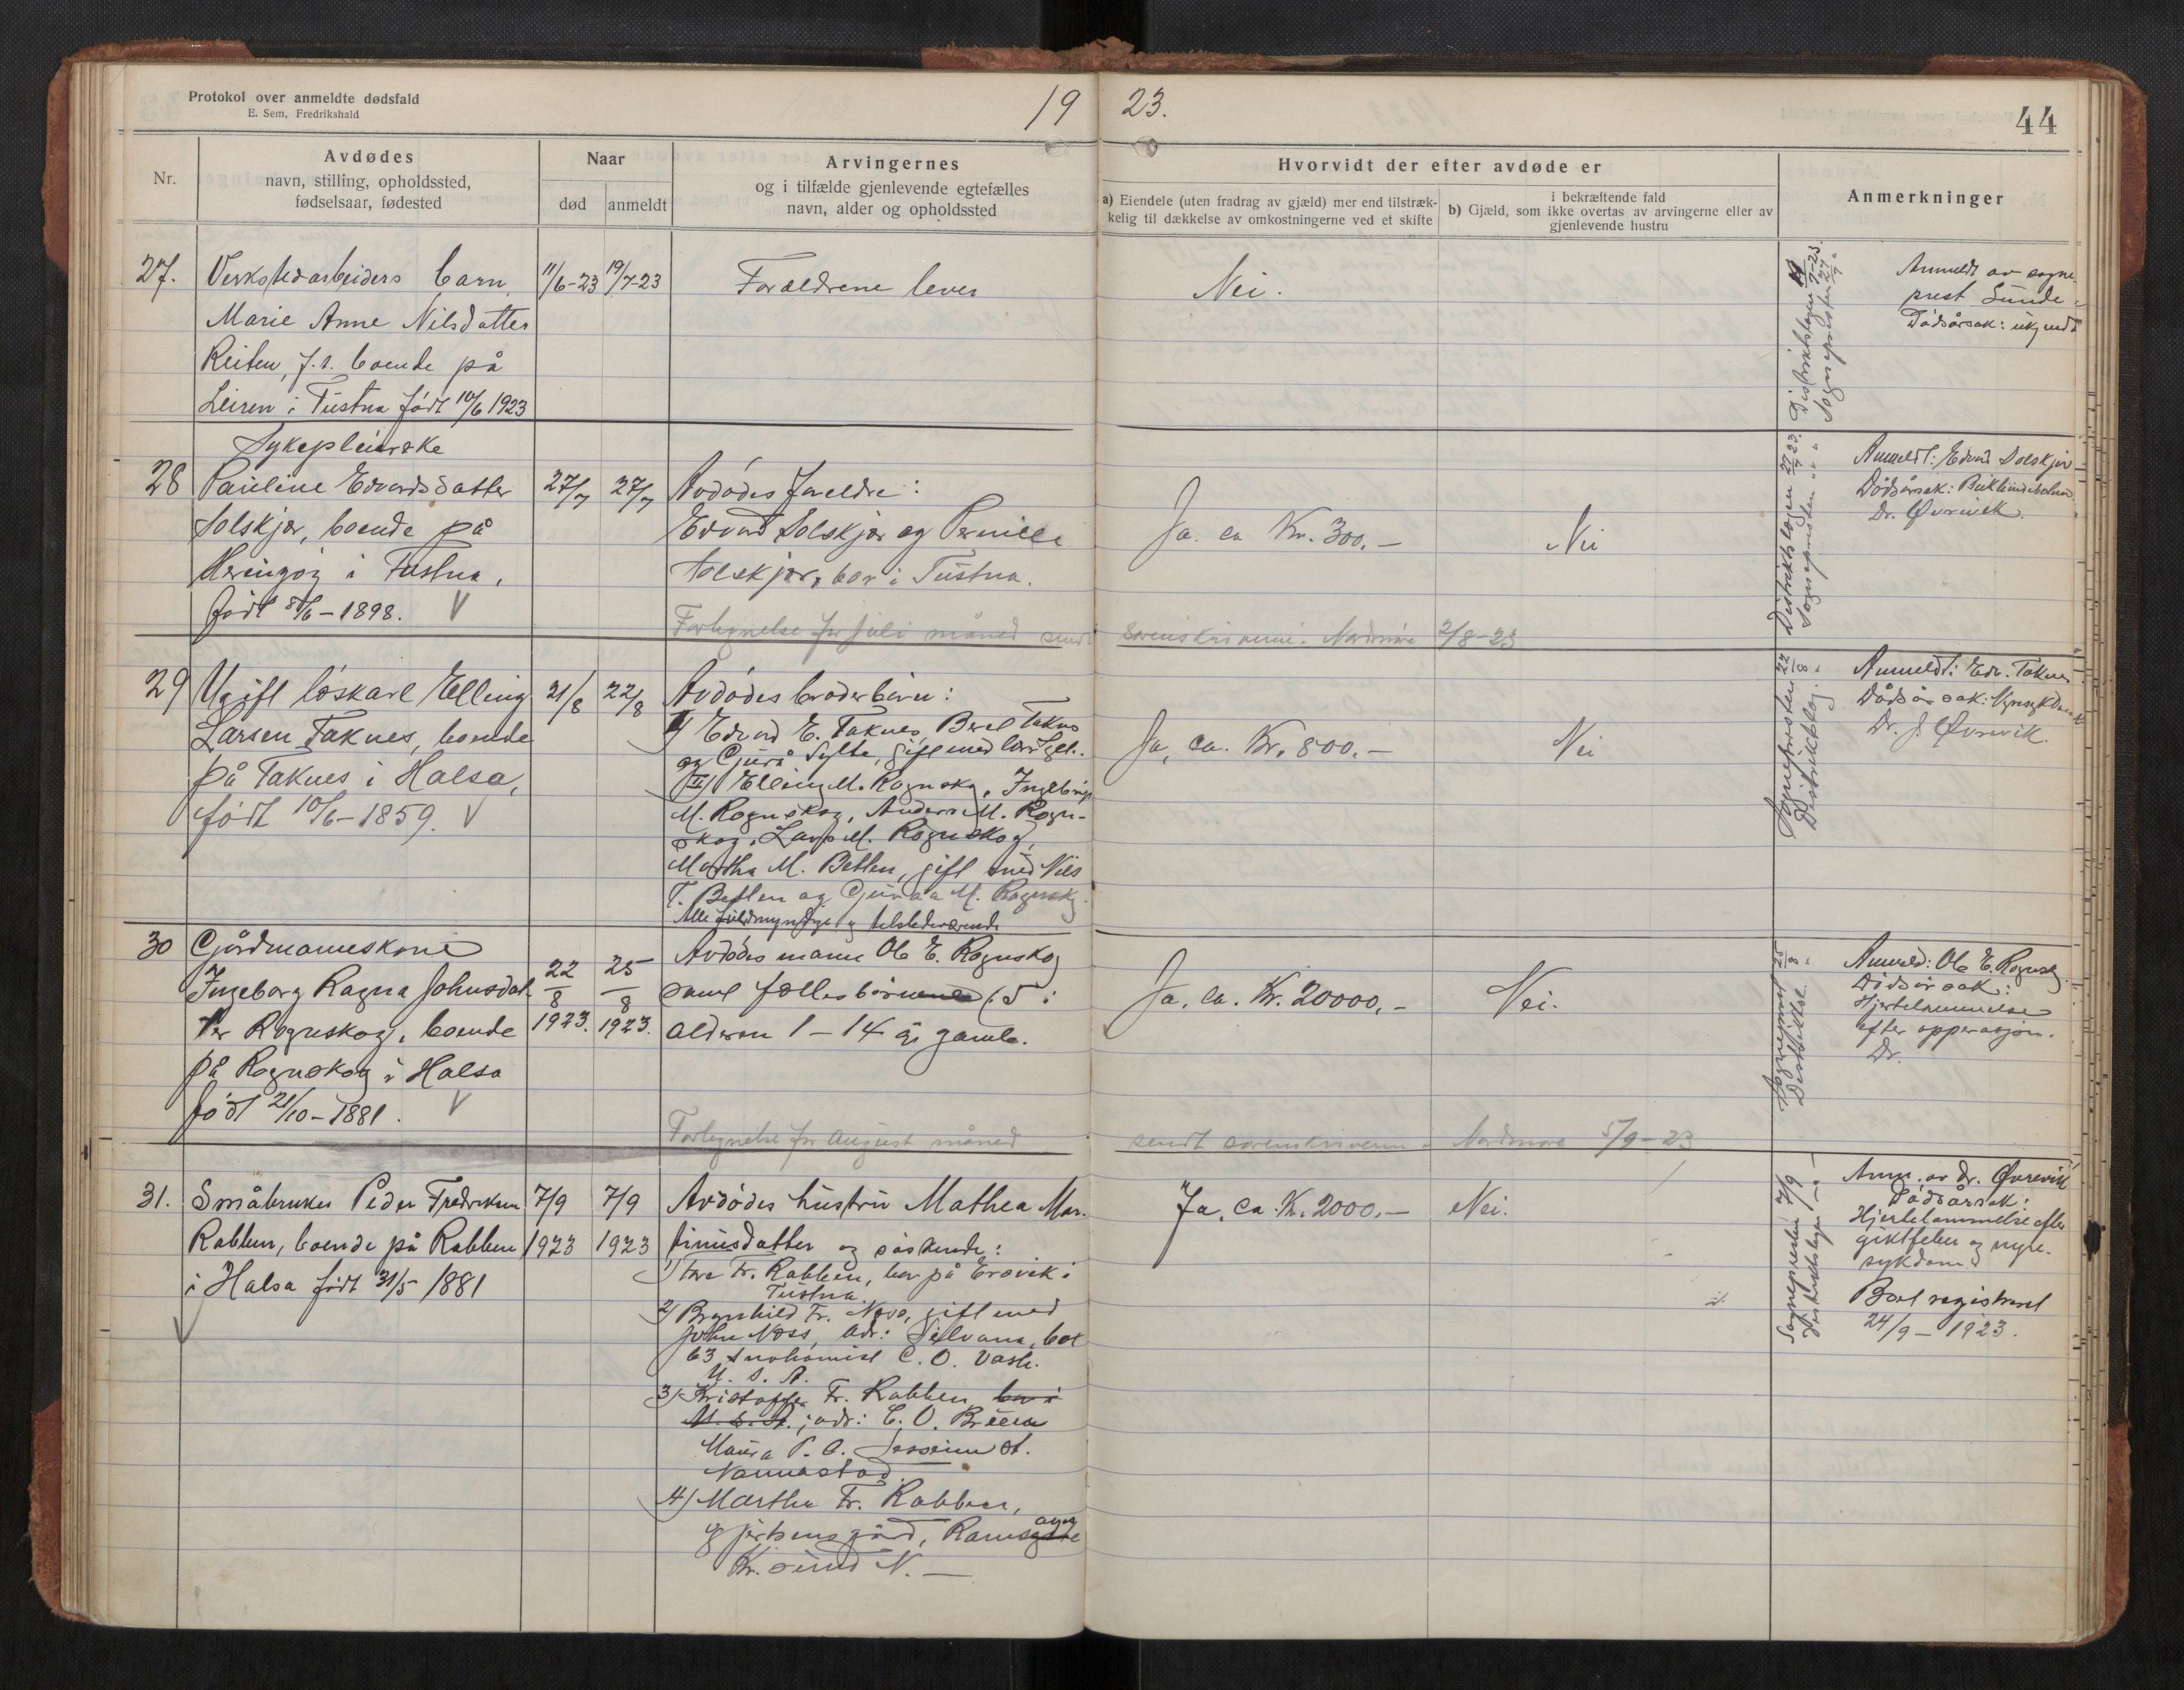 Protokol over anmeldte dødsfald
E. Sem, Fredrikshald
19 23.
44
Nr.
Avdødes
navn, stilling, opholdssted,
fødselsaar, fødested
Naar
død anmeldt
Arvingernes
og i tilfælde gjenlevende egtefælles
navn, alder og opholdssted
Hvorvidt der efter avdøde er
a) Eiendele (uten fradrag av gjæld) mer end tilstræk-
kelig til dækkelse av omkostningerne ved et skifte
i bekræftende fald
b) Gjæld, som ikke overtas av arvingerne eller av
gjenlevende hustru
Anmerkninger
27.
Verkstedarbeiders barn
Marie Anne Nilsdatter
Reiten, f. s. boende på
Leiren i Tustna født 10/6 1923
11/6-23
19/7-23
Forældrene lever
Nei.
Distriktslægen 19/7-23.
Sognepresten 27/7 "
Anmeldt av sogne-
prest Sunde.
Dødsårsak: ukjendt
28
Sykepleierske
Pauline Edvardsdatter
Solskjær, boende på
i Tustna,
født 8/6-1898. V
27/7
27/7
Avdødes foreldre:
Edvard Solskjær og Pernille
Solskjær, bor i Tustna.
Ja. ca Kr. 300.-
Nei
Distriktslægen 27/7 23.
Sognepresten " " "
Anmeldt: Edvard Solskjær
Dødsårsak:
Dr. Øvrevik.
Fortegnelse for juli måned sendt sorenskriveren i Nordmøre 2/8-23
29
Ugift løskarl Elling
Larsen Taknes, boende
på Taknes i Halsa,
født 10/6-1859. V
21/8
22/8
Avdødes broderbørn:
I) Edvard E. Taknes, Beret Taknes
og Gjurå Sylte, gift med
II) Elling M. Rognskog, Ingebrigt
M. Rognskog, Anders M. Rogn-
skog, Lars M. Rognskog,
Martha M. Betten, gift med Nils
T. Betten og M. Rognskog.
Alle fuldmyndige og tilstedeværende
Ja, ca. Kr. 800.-
Nei
Sognepresten 22/8 "
Distriktslæg.
Anmeldt: Edv. Taknes
Dødsårsak: Nyresykdom
Dr. J. Øvrevik.
30
Gjårdmannskone
Ingeborg Ragna Johnsdat-
ter Rognskog, boende
på Rognskog i Halsa
født 21/10-1881. V
22/8 1923.
25/8 1923.
Avdødes mann Ole E. Rognskog
samt fællesbørnene (5 i
alderen 1-14 år gamle.
Ja, ca. Kr. 20000,-
Nei.
Sogneprest 25/8 "
Distriktslæ.
Anmeld: Ole E. Rognsk.
Dødsårsak:
Hjertelammelse
efter opperasjon.
Dr.
Fortegnelse for august måned sendt sorenskriveren i Nordmøre 5/9-23
31.
Småbruker Peder Fredriksen
Rabben, boende på Rabben
i Halsa født 31/5 1881
7/9 1923
7/9 1923
Avdødes hustru Mathea Mar-
tinusdatter og søskende:
1) Tore Fr. Rabben, bor på Ersvik i
Tustna.
2) Brynhild Fr. Ness, gift med
John Ness, adr: Silvana, box
63 Snohomish C.O. Vash.
U.S.A.
3) Kristoffer Fr. Rabben bor i
U.S.A.; adr: C. O.
Maura P. A. Jessheim st.
Nannestad.
4) Martha Fr. Rabben,
Kr.sund N.-
Ja, ca. Kr. 2000.-
Nei.
Sognepresten 7/9
Distriktslægen
Anm. av dr. Øvrevik
Dødsårsak:
Hjertelammelse efter
giktfeber og nyre-
sykdom
Boet registreret
24/9-1923.